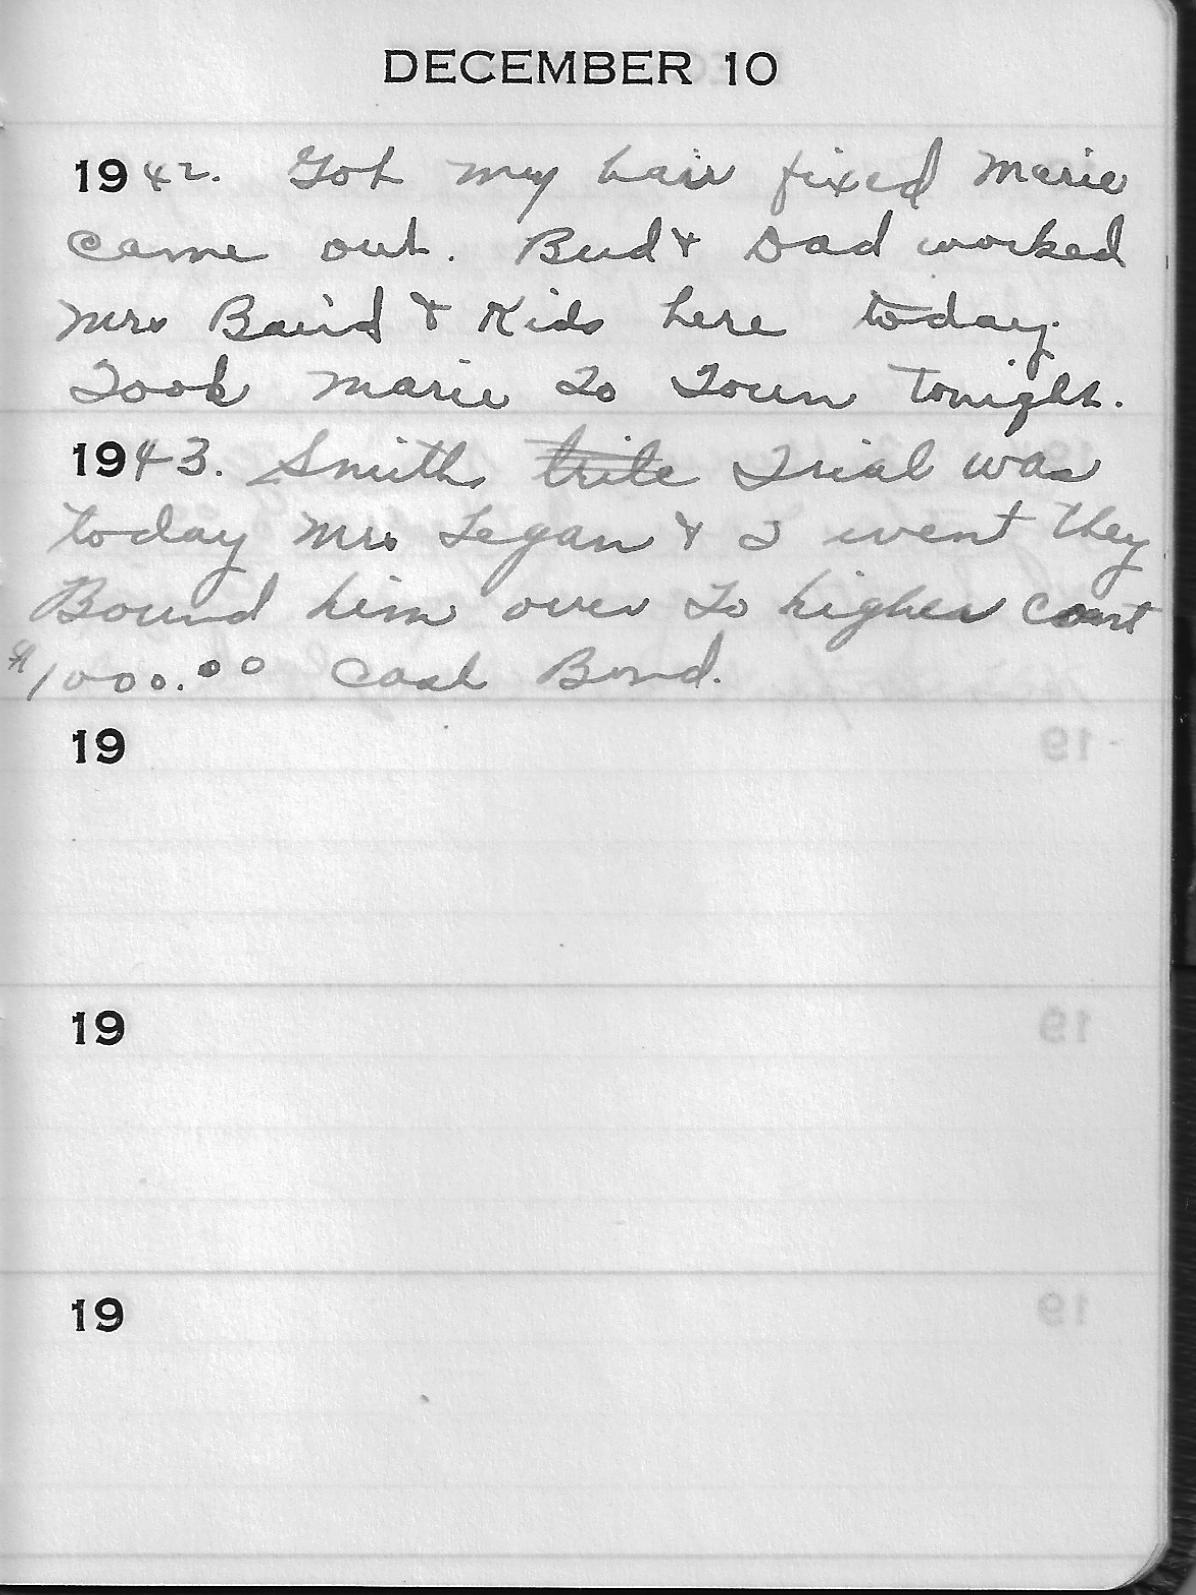 DECEMBER 10
1942. Got my hair fixed Marie
came out. Bud & Dad worked
Mrs Baird & Kids here today.
Took Marie To Town Tonight.
1943. Smith ~~trile~~ Trial was
today Mrs Legan & I went They
Bound him over To higher Court
$1000.00 Cash Bond.
19
19
19